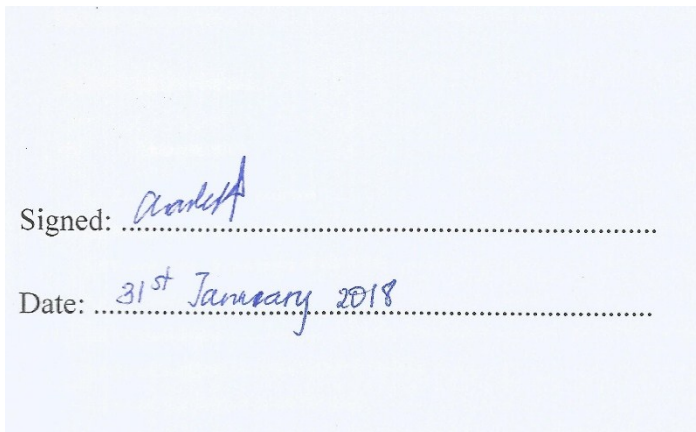 Signed:
Date: 31st January 2018